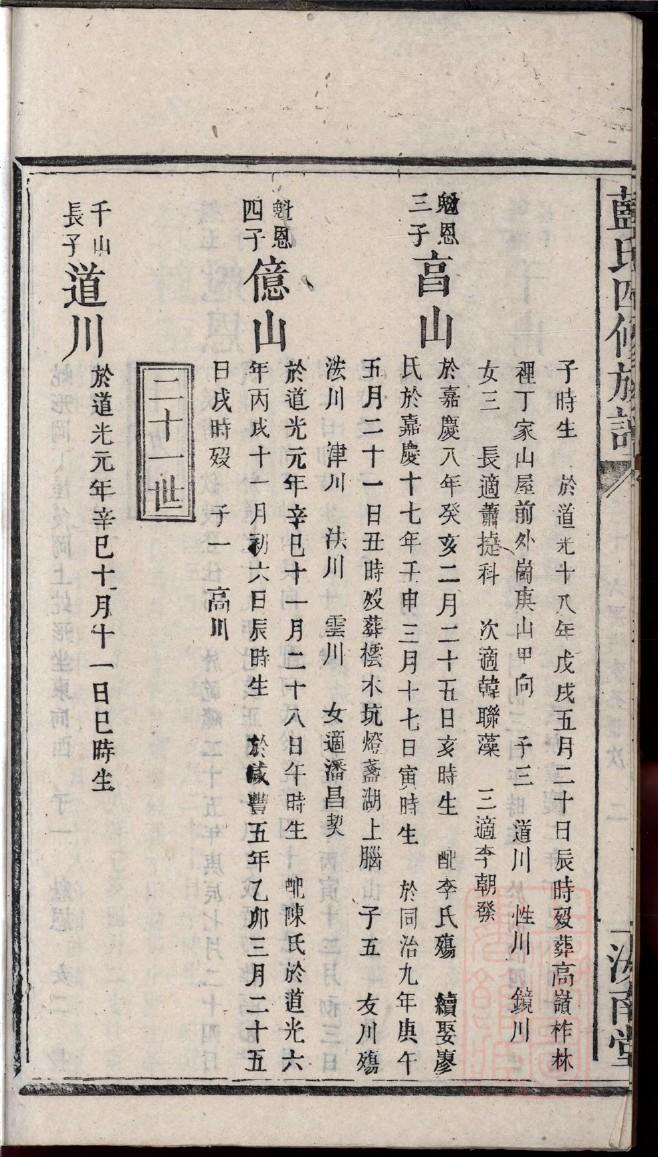 藍氏四修族譜
汝南堂
子時生 於道光十八年戊戌五月二十日辰時歿葬高嶺柞林
裡丁家山屋前外崗庚山甲向 子三 道川 性川 鏡川
女三 長適蕭㨗科 次適韓聯藻 三適李朝發
魁恩三子 亯山 於嘉慶八年癸亥二月二十五日亥時生 配李氏殤 續娶廖
氏於嘉慶十七年壬申三月十七日寅時生 於同治九年庚午
五月二十一日丑時歿葬橒木坑燈盞湖上腦 子五 友川殤
法川 津川 洪川 雲川 女適潘昌契
魁恩四子 億山 於道光元年辛巳十一月二十八日午時生 配陳氏於道光六
年丙戌十一月初六日辰時生 於咸豐五年乙卯三月二十五
日戌時歿 子一 高川
二十一世
千山長子 道川 於道光元年辛巳十月十一日巳時生